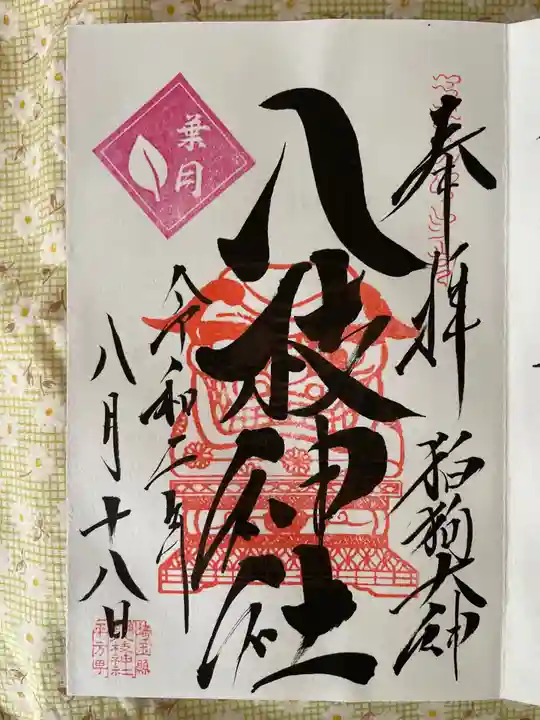 奉拝
狛狗大神
八枝神社
葉月
令和二年
八月十八日
埼玉縣
八枝神社
平方男